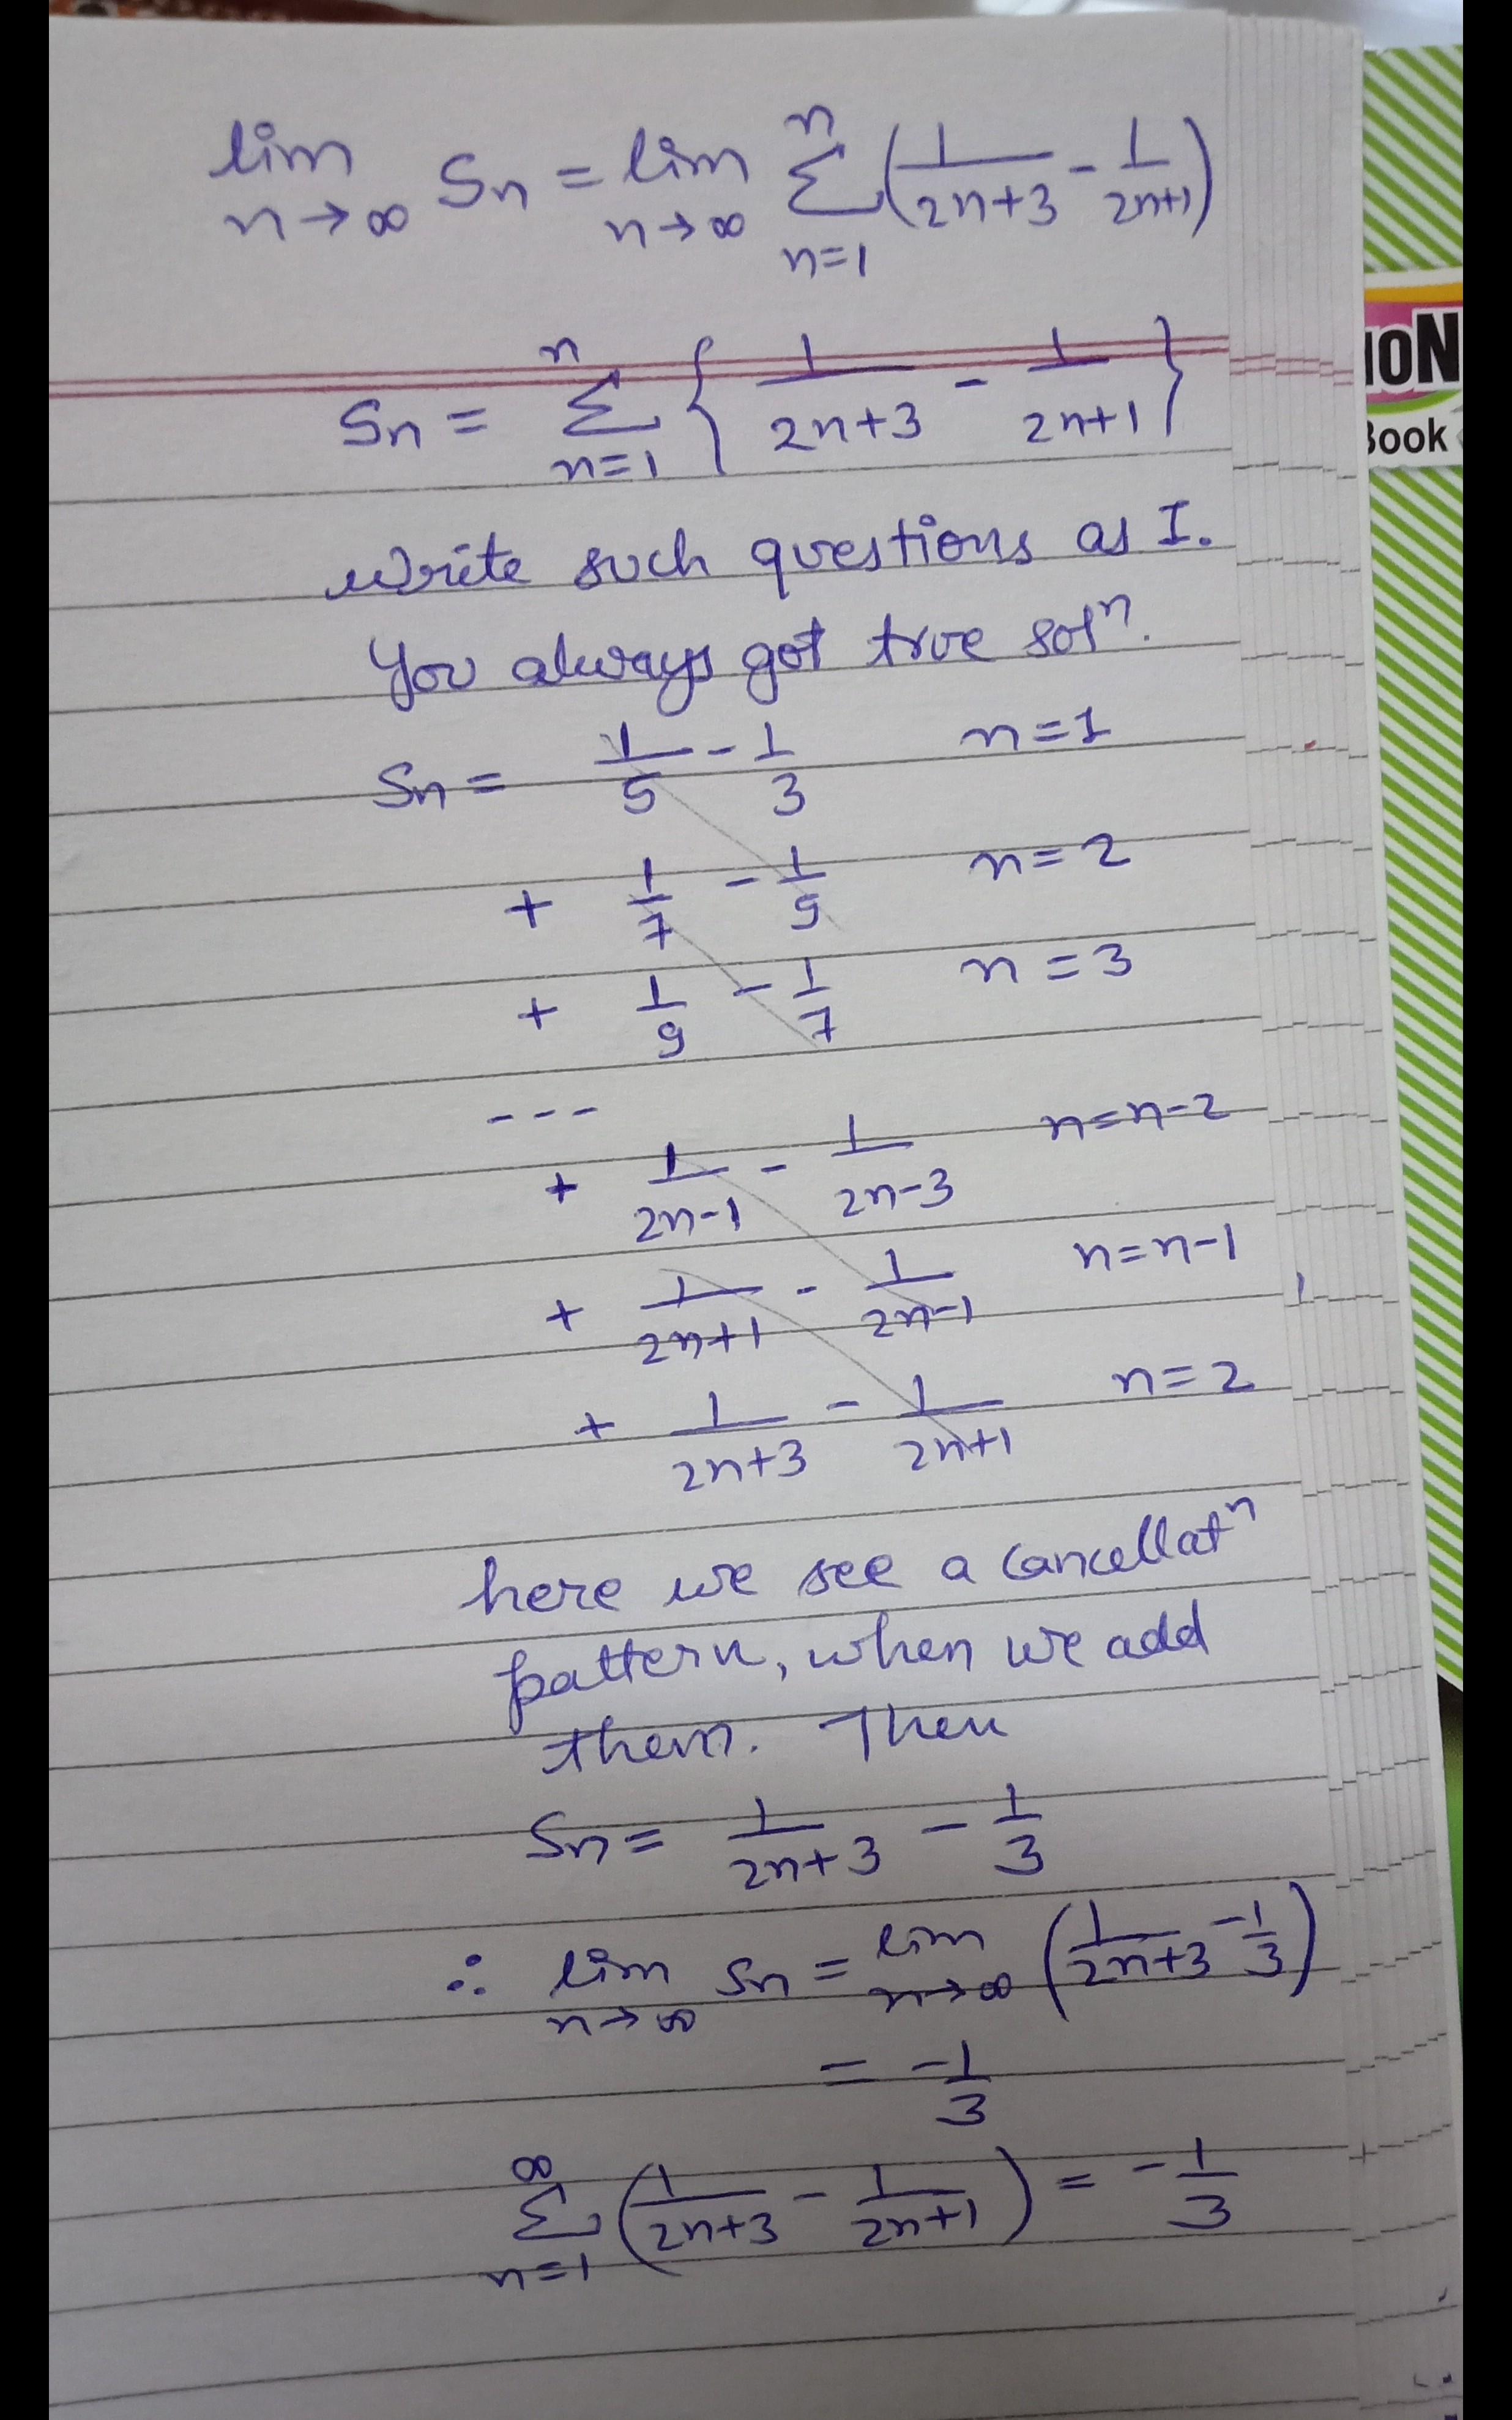 lim Sn = lim Σ (1/(2n+3) - 1/(2n+1))
n→∞ n→∞ n=1 n
Sn = Σ { 1/(2n+3) - 1/(2n+1) }
n=1 n
ION
Book
write such questions as I.
You always got true solⁿ.
Sn = 1/5 - 1/3 n=1
+ 1/7 - 1/9 n=2
+ 1/9 - 1/7 n=3
---
+ 1/(2n-1) - 1/(2n-3) n=n-2
+ 1/(2n+1) - 1/(2n-1) n=n-1
+ 1/(2n+3) - 1/(2n+1) n=2
here we see a cancellatⁿ
pattern, when we add
them. Then
Sn = 1/(2n+3) - 1/3
∴ lim Sn = lim (1/(2n+3) - 1/3)
n→∞ n→∞
= -1/3
∞
Σ (1/(2n+3) - 1/(2n+1)) = -1/3
n=1